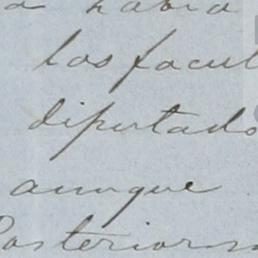 a habia
los facul
diputado
aunque
Posteriorm